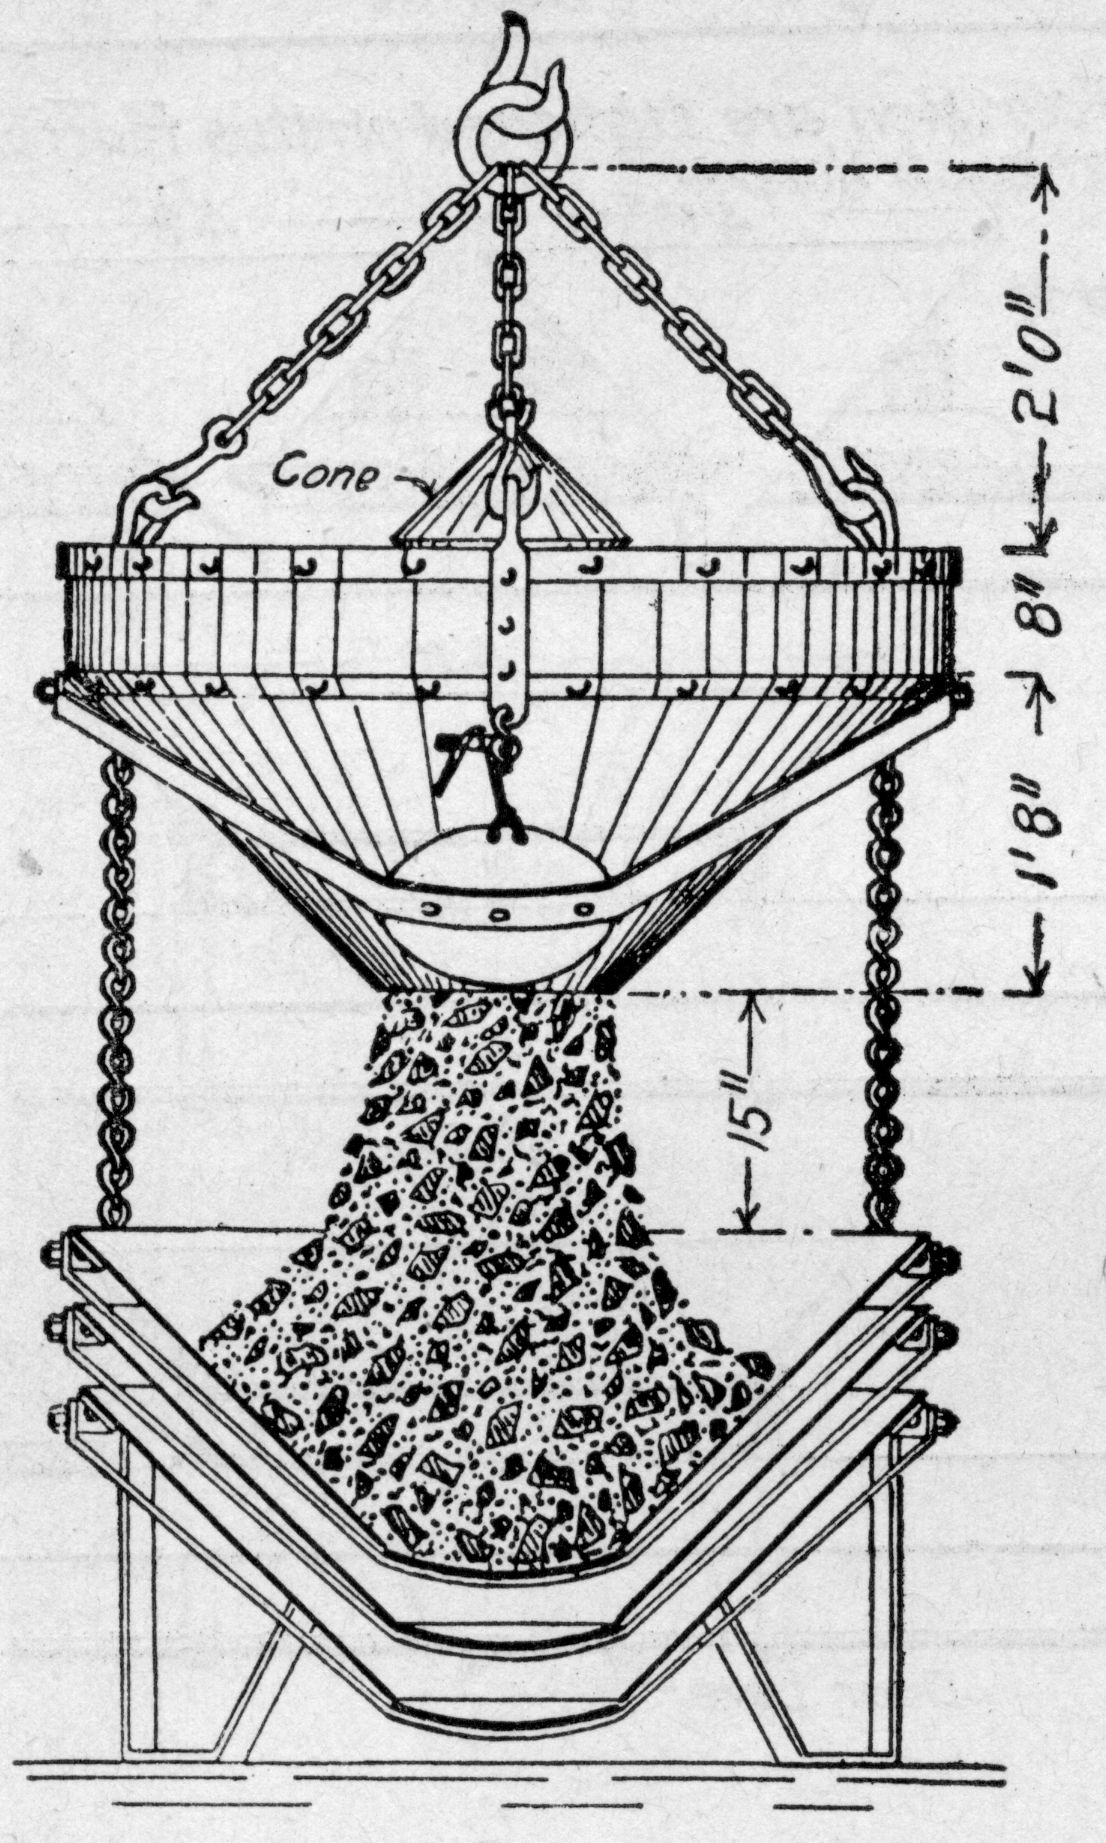 Cone
2'0"
8"
1'8"
15"